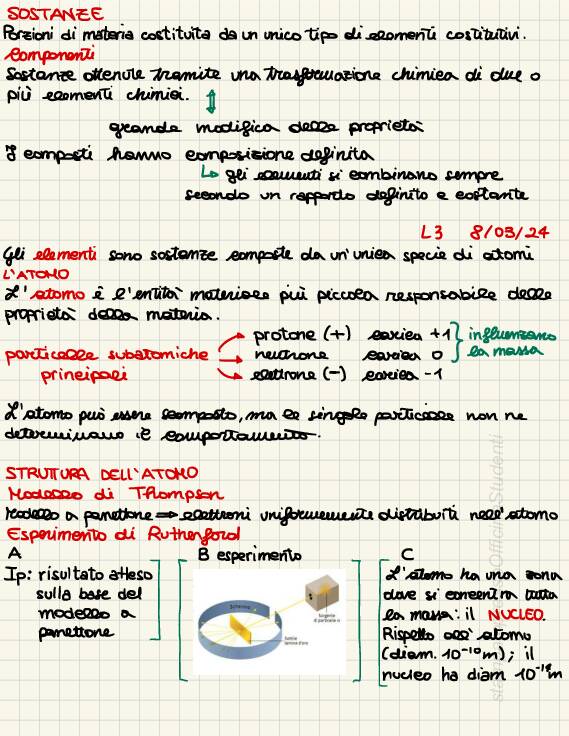 SOSTANZE
Porzioni di materia costituita da un unico tipo di elementi costitutivi.
Componenti
Sostanze ottenute tramite una trasformazione chimica di due o
più elementi chimici.
grande modifica delle proprietà
I composti hanno composizione definita
↳ gli elementi si combinano sempre
secondo un rapporto definito e costante
L3 8/03/24
Gli elementi sono sostanze composte da un'unica specie di atomi
L'ATOMO
L'atomo è l'entità materiale più piccola responsabile delle
proprietà della materia.
particelle subatomiche
principali
protone (+) carica +1
neutrone carica 0
elettrone (-) carica -1
influenzano
la massa
L'atomo può essere scomposto, ma le singole particelle non ne
determinano il comportamento.
STRUTTURA DELL'ATOMO
Modello di Thompson
Modello a panettone ⇒ elettroni uniformemente distribuiti nell'atomo
Esperimento di Rutherford
A
Ip: risultato atteso
sulla base del
modello a
panettone
B esperimento
Schermo
Sorgente
di particelle α
Sottile
lamina d'oro
C
L'atomo ha una zona
dove si concentra tutta
la massa: il NUCLEO.
Rispetto all'atomo
(diam. 10⁻¹⁰ m); il
nucleo ha diam